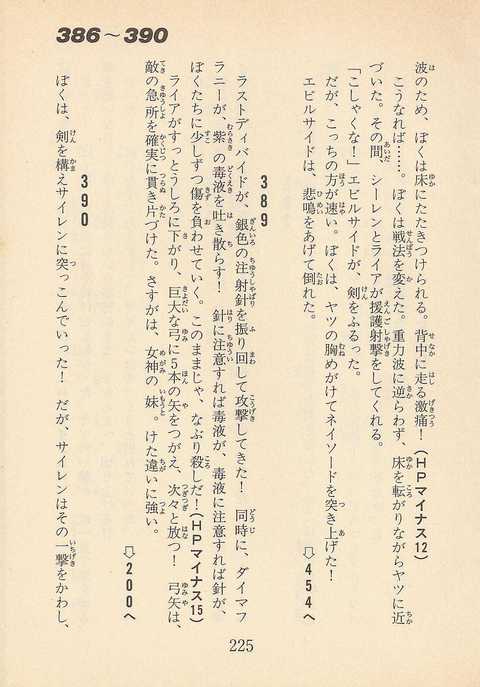 386～390
波のため、ぼくは床にたたきつけられる。背中に走る激痛！（ＨＰマイナス12）
こうなれば……。ぼくは戦法を変えた。重力波に逆らわず、床を転がりながらヤツに近
づいた。その間、シーレンとライアが援護射撃をしてくれる。
「こしゃくな！」エビルサイドが、剣をふるった。
だが、こっちの方が速い。ぼくは、ヤツの胸めがけてネイソードを突き上げた！
エビルサイドは、悲鳴をあげて倒れた。
⇨454へ
389
ラストディバイドが、銀色の注射針を振り回して攻撃してきた！　同時に、ダイマフ
ラニーが、紫の毒液を吐き散らす！　針に注意すれば毒液が、毒液に注意すれば針が、
ぼくたちに少しずつ傷を負わせていく。このままじゃ、なぶり殺しだ！（ＨＰマイナス15）
ライアがすっとうしろに下がり、巨大な弓に5本の矢をつがえ、次々と放つ！　弓矢は、
敵の急所を確実に貫き片づけた。さすがは、女神の妹。けた違いに強い。
⇨200へ
390
ぼくは、剣を構えサイレンに突っこんでいった！　だが、サイレンはその一撃をかわし、
225